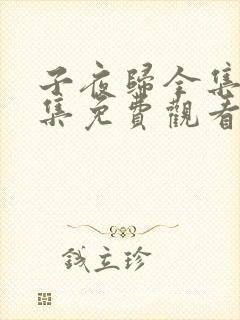 子夜歸全集
集免費觀看
錢立珍